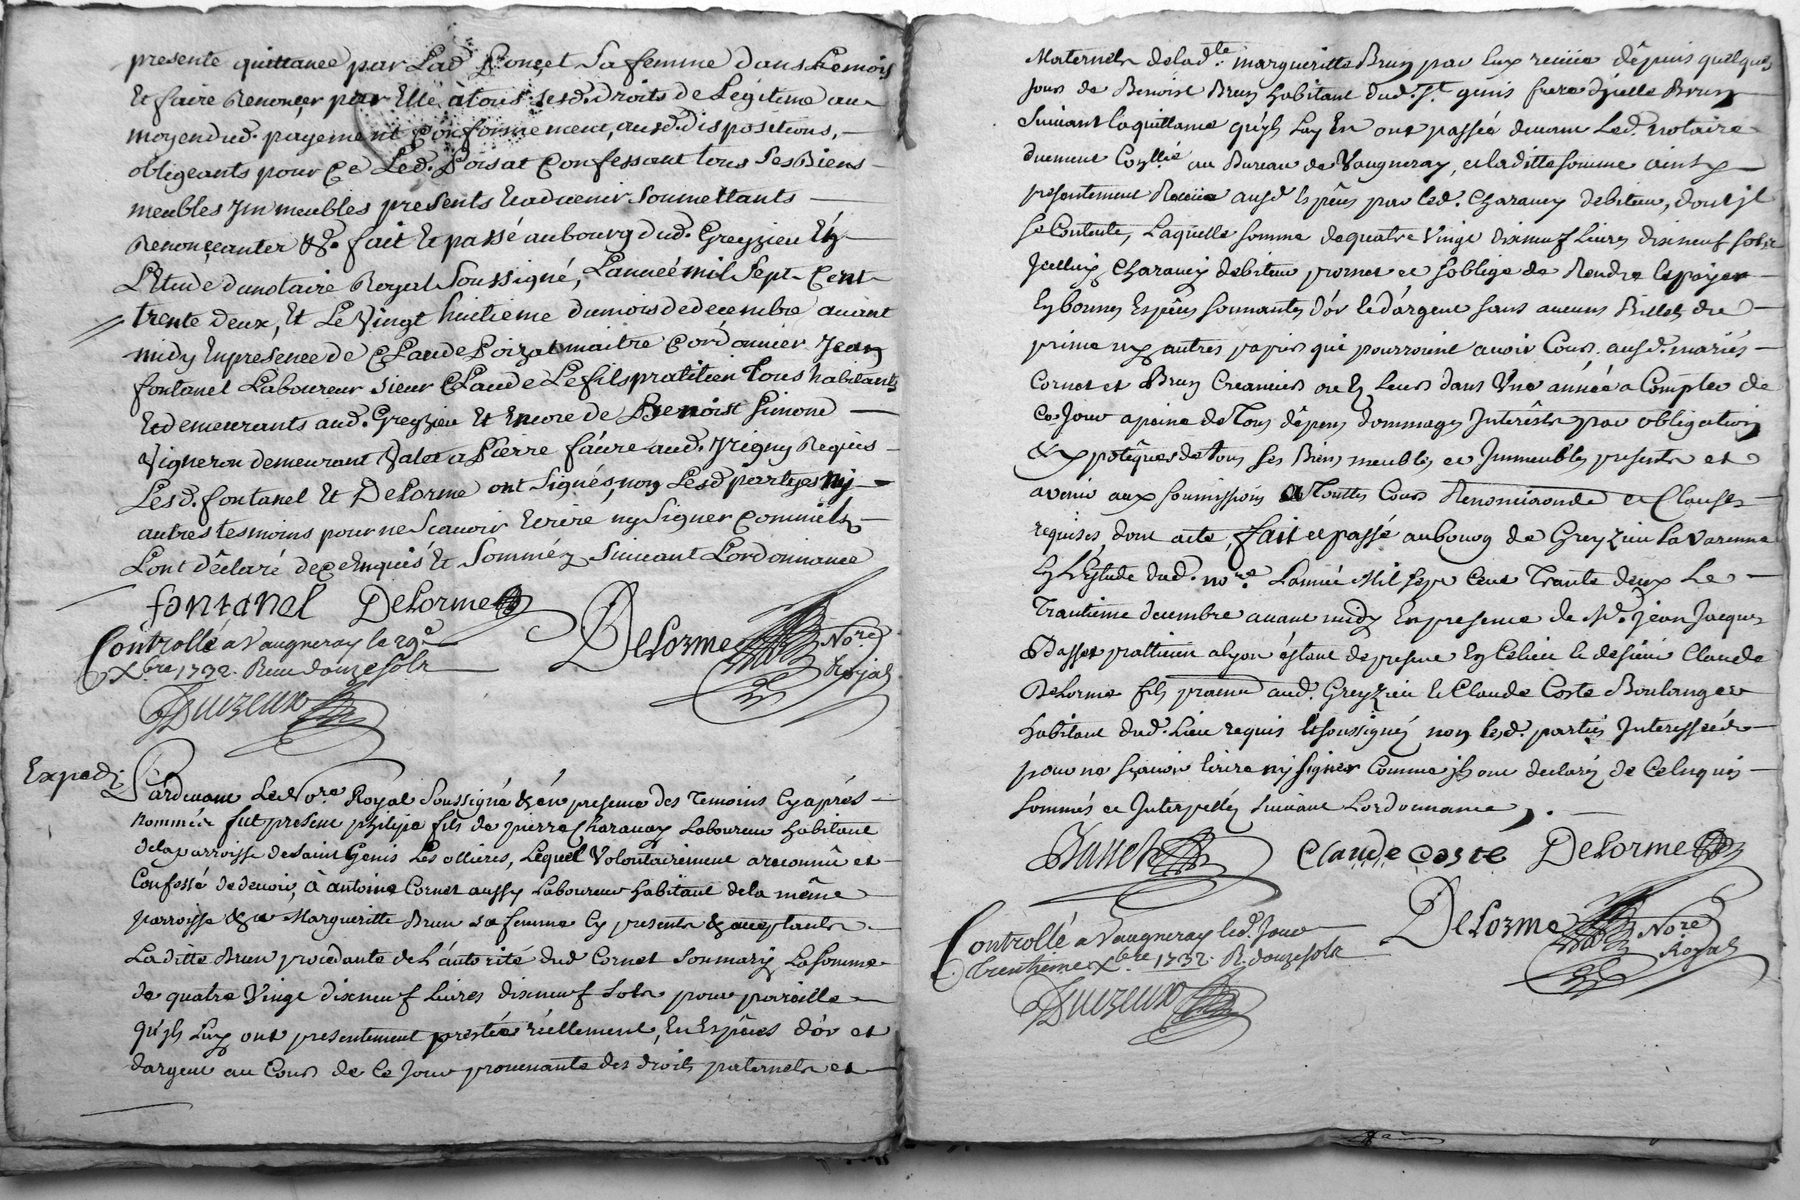 presente quittance par Lad Poncet Sa femme dans Le mois
Et faire Renonçer par Elle à tous sesd. droits de Légitime au
moyen dud. payement Conformement, ausd. dispositions,
obligeants pour Ce Led. Poisat Confessant tous Ses Biens
meubles Jmmeubles presents Et advenir Soumettants
Renonçants &a. fait Et passé au bourg dud. Greyzieu En
L'Etude du notaire Royal Soussigné, L'année mil Sept Cent
trente deux, Et Le Vingt huitieme du mois de decembre avant
midy En presence de Claude Poizat maitre Cordonnier Jean
fontanel Laboureur sieur Claude Le fils pratitien Tous habitants
Et demeurants aud. Greyzieu Et Encore de Benoist Simond
Vigneron demeurant Valet a Pierre favre aud. Jrigny Requis
Lesd. fontanel Et Delorme ont Signés, non Lesd partyes Ny
autres tesmoins pour ne Scavoir Ecrire ny Signer Comme ils
L'ont déclaré de ce Enquis Et Sommés Suivant L'ordonnance
fontanel Delorme
Delorme Nore Royal
Controllé a Vaugneray le 29e
Xbre 1732. Reçu douze sols
Duizeux
Expedi
Pardevant Le Nore Royal Soussigné & en presence des Temoins Cy après
nommés fut present philipe fils de pierre Charavay Laboureur habitant
de la parroisse de Saint Genis Les ollieres, Lequel Volontairement a reconnû et
Confessé de devoir, à antoine Cornet aussy Laboureur habitant de la même
parroisse & a Margueritte Brun sa femme Cy presents & acceptants
La ditte Brun procedante de L'autorité dud Cornet Son mary La Somme
de quatre Vingt dixneuf Livres dixneuf sols pour pareille
qu'ils Luy ont presentement prestée réellement, En Espèces d'or et
d'argent au Cours de Ce Jour provenante des droits paternels et
Maternels de lad.te margueritte Brun par Eux reçüe dépuis quelques
Jours de Benoist Brun habitant dud. St. genis frere d'yelle Brun
Suivant la quittance qu'ils Luy En ont passée devant Led. notaire
duement Conllée au Bureau de Vaugneray, et la ditte somme ainsy
presentement Reçüe ausd. Espéces par led. Charavey debiteur, dont il
Se Contente, Laquelle somme de quatre Vingt dixneuf Livres dixneuf sols
Jcelluy Charavey debiteur promet et s'oblige de Rendre Et payer
En bonnes Espéces sonnantes d'or et d'argent sans aucuns Billets de
prime ny autres papiers qui pourroient avoir Cours. ausd. mariés
Cornet et Brun Creanciers ou En Leurs dans Une année a Compter de
Ce Jour a peine de Tous dépens dommages Interêsts par obligation
& Ypotêques de tous Ses Biens meubles et Jmmeubles presents et
avenir aux soumissions a Touttes Cours Renonciations et Clauses
requises dont acte, fait et passé au bourg de Greyzieu La Varenne
En L'Estude dud. nore. L'année Mil sept Cent Trante deux Le
Trantieme decembre avant midy En presence de Mr. Jean Jacques
Basset pratticien a lyon éstant de present En Ce lieu Et de sieur Claude
Delorme fils praticien aud. Greyzieu Et Claude Coste Boulanger
habitant dud. Lieu requis Et soussignés non Lesd. parties Interessées
pour ne sçavoir Ecrire ny signer Comme ils ont declaré de Ce Enquis
Sommés et Interpellés suivant Lordonnance,.
Claude Coste Delorme
Delorme Nore Royal
Controllé a Vaugneray led. Jour
Trentieme Xbre 1732. R. douze sols
Duizeux